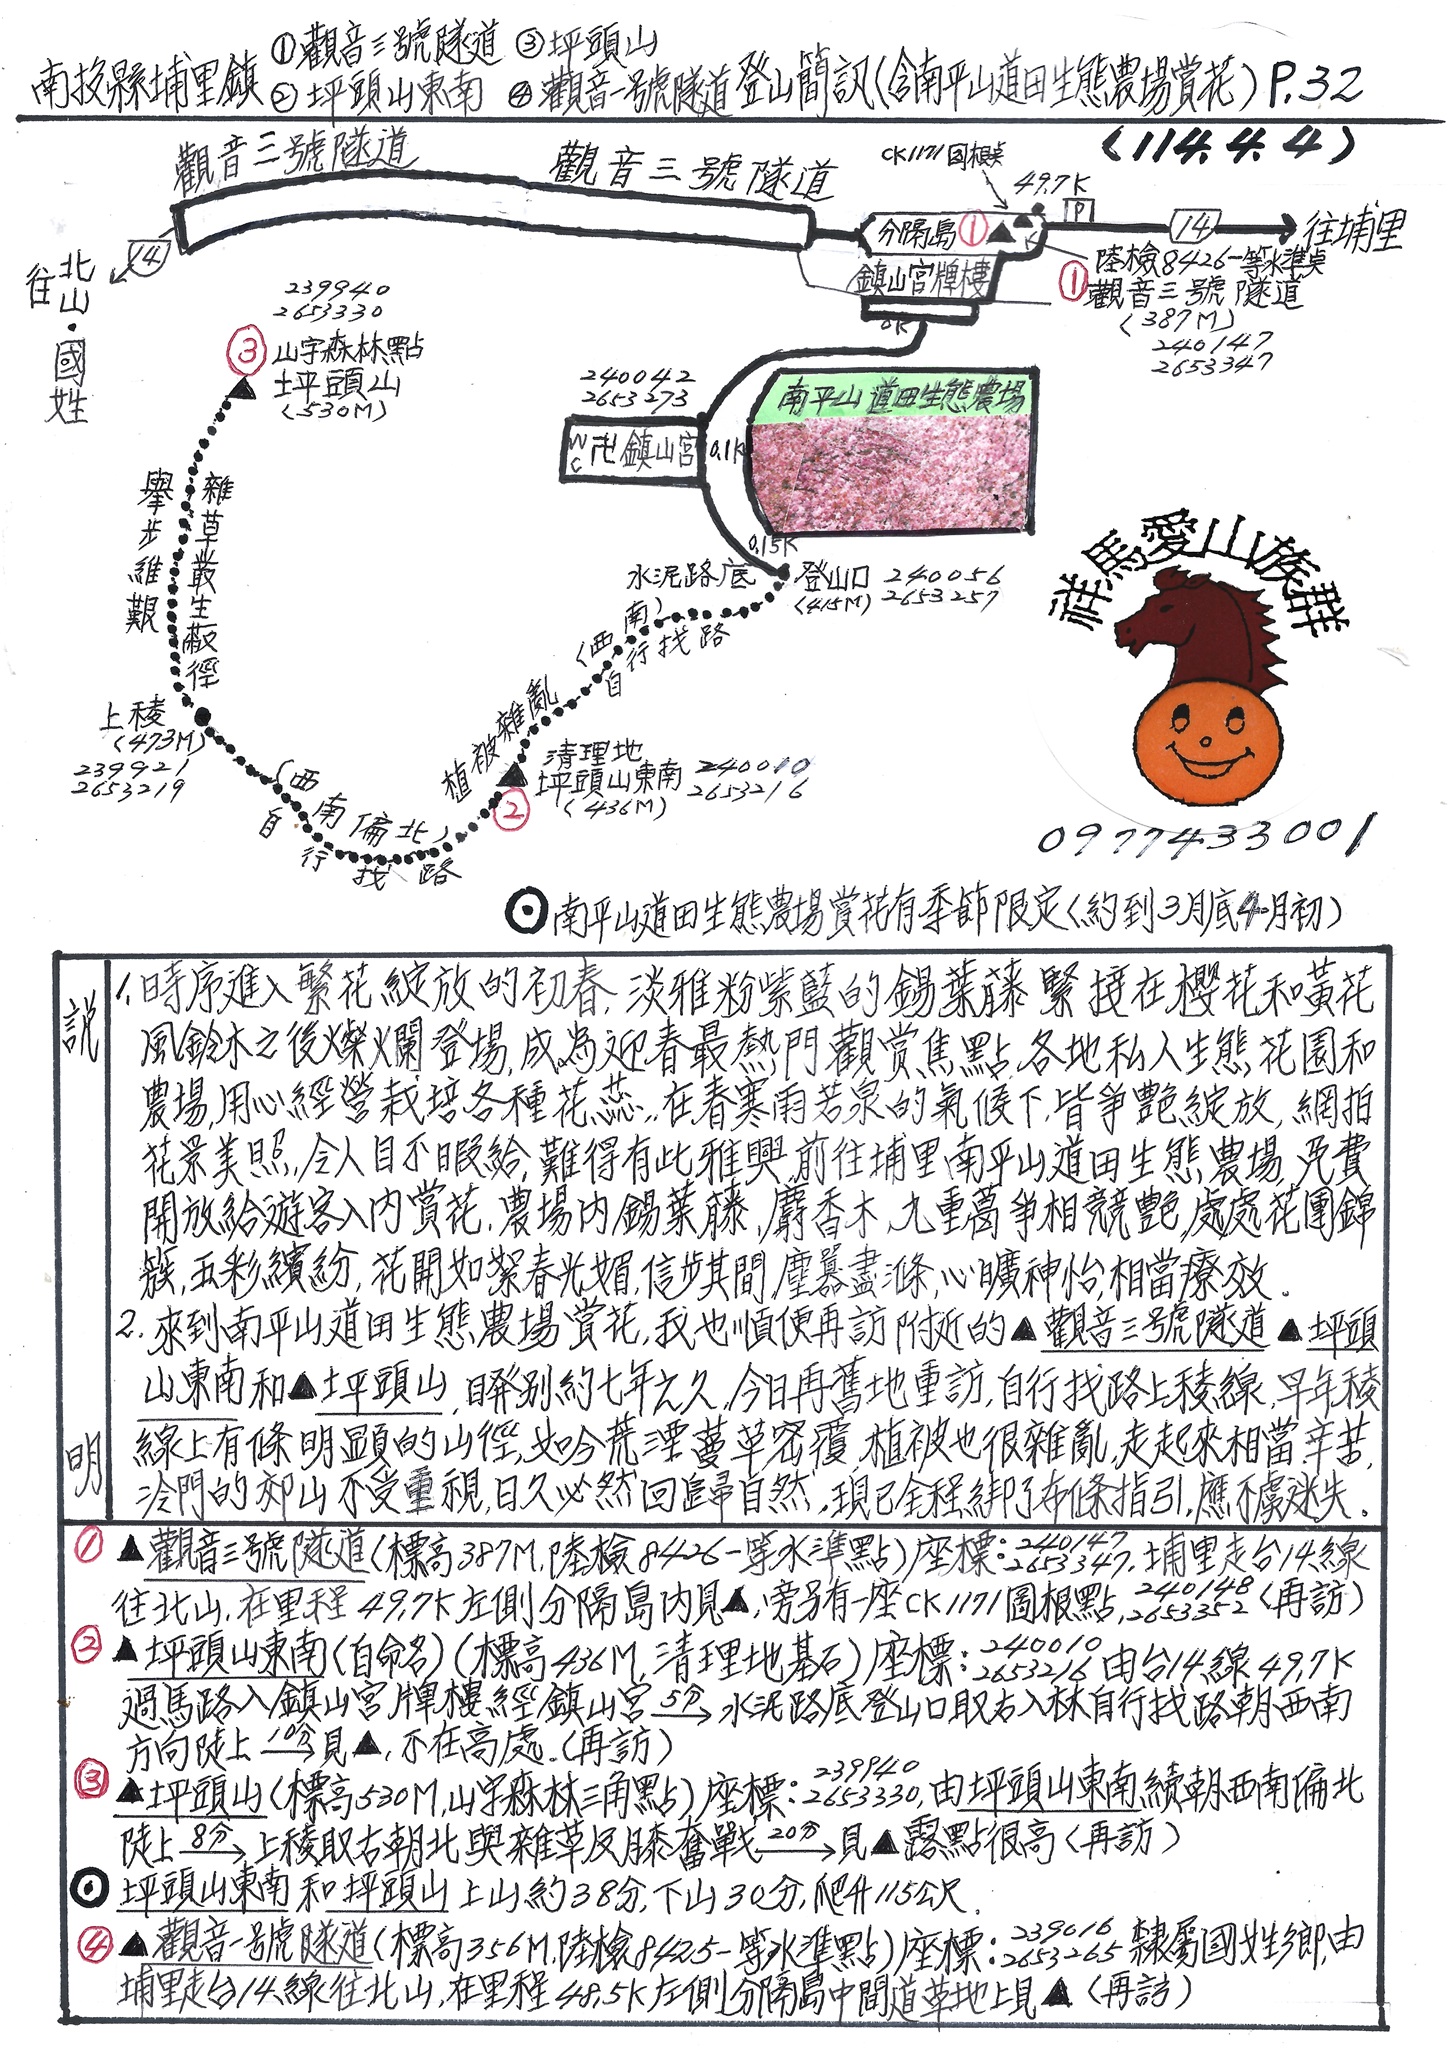 南投縣埔里鎮
①觀音三號隧道 ③坪頭山
②坪頭山東南 ④觀音一號隧道
登山簡訊(含南平山道田生態農場賞花) P.32
(114.4.4)
觀音三號隧道
觀音三號隧道
CK1171圖根點
49.7K
P
14
往埔里
分隔島 ①
K
鎮山宮牌樓
0K
陸檢8426一等水準點
①觀音三號隧道
(387M)
240147
2653347
14
往北山·國姓
239940
2653330
③山字森林點
坪頭山
(530M)
240042
2653273
南平山道田生態農場
WC
卍鎮山宮
0.1K
0.15K
水泥路底
登山口
(415M)
240056
2653257
(西南)
自行找路
雜草叢生蔽徑
舉步維艱
上稜
(473M)
239921
2653219
植被雜亂
清理地
坪頭山東南
(436M)
240010
2653216
②
(西南偏北)
自行找路
祥馬愛山族群
0977433001
⊙南平山道田生態農場賞花有季節限定(約到3月底4月初)
說明
1.時序進入繁花綻放的初春,淡雅粉紫藍的錫葉藤緊接在櫻花和黃花
風鈴木之後燦爛登場,成為迎春最熱門觀賞焦點,各地私人生態花園和
農場,用心經營栽培各種花蕊,在春寒雨若泉的氣候下,皆爭艷綻放,網拍
花景美照,令人目不暇給,難得有此雅興,前往埔里南平山道田生態農場,免費
開放給遊客入內賞花,農場內錫葉藤,麝香木,九重葛爭相競艷,處處花團錦
簇,五彩繽紛,花開如絮春光媚,信步其間,塵囂盡滌,心曠神怡,相當療效.
2.來到南平山道田生態農場賞花,我也順便再訪附近的▲觀音三號隧道▲坪頭
山東南和▲坪頭山,睽別約七年之久,今日再舊地重訪,自行找路上稜線,早年稜
線上有條明顯的山徑,如今荒湮蔓草密覆,植被也很雜亂,走起來相當辛苦,
冷門的郊山不受重視,日久必然回歸自然,現已全程綁了布條指引,應不虞迷失.
①▲觀音三號隧道(標高387M,陸檢8426一等水準點)座標:240147 2653347,埔里走台14線
往北山,在里程49.7K左側分隔島內見▲,旁另有一座CK1171圖根點,240148 2653352(再訪)
②▲坪頭山東南(自命名)(標高436M,清理地基石)座標:240010 2653216由台14線49.7K
過馬路入鎮山宮牌樓經鎮山宮 5分→水泥路底登山口取右入林自行找路朝西南
方向陡上 10分→見▲,不在高處.(再訪)
③▲坪頭山(標高530M,山字森林三角點)座標:239940 2653330,由坪頭山東南續朝西南偏北
陡上 8分→上稜取右朝北與雜草反膝奮戰 20分→見▲露點很高(再訪)
⊙坪頭山東南和坪頭山上山約38分,下山30分,爬升115公尺.
④▲觀音一號隧道(標高356M,陸檢8425一等水準點)座標:239016 2653265隸屬國姓鄉,由
埔里走台14線往北山,在里程48.5K左側分隔島中間道草地上見▲(再訪)